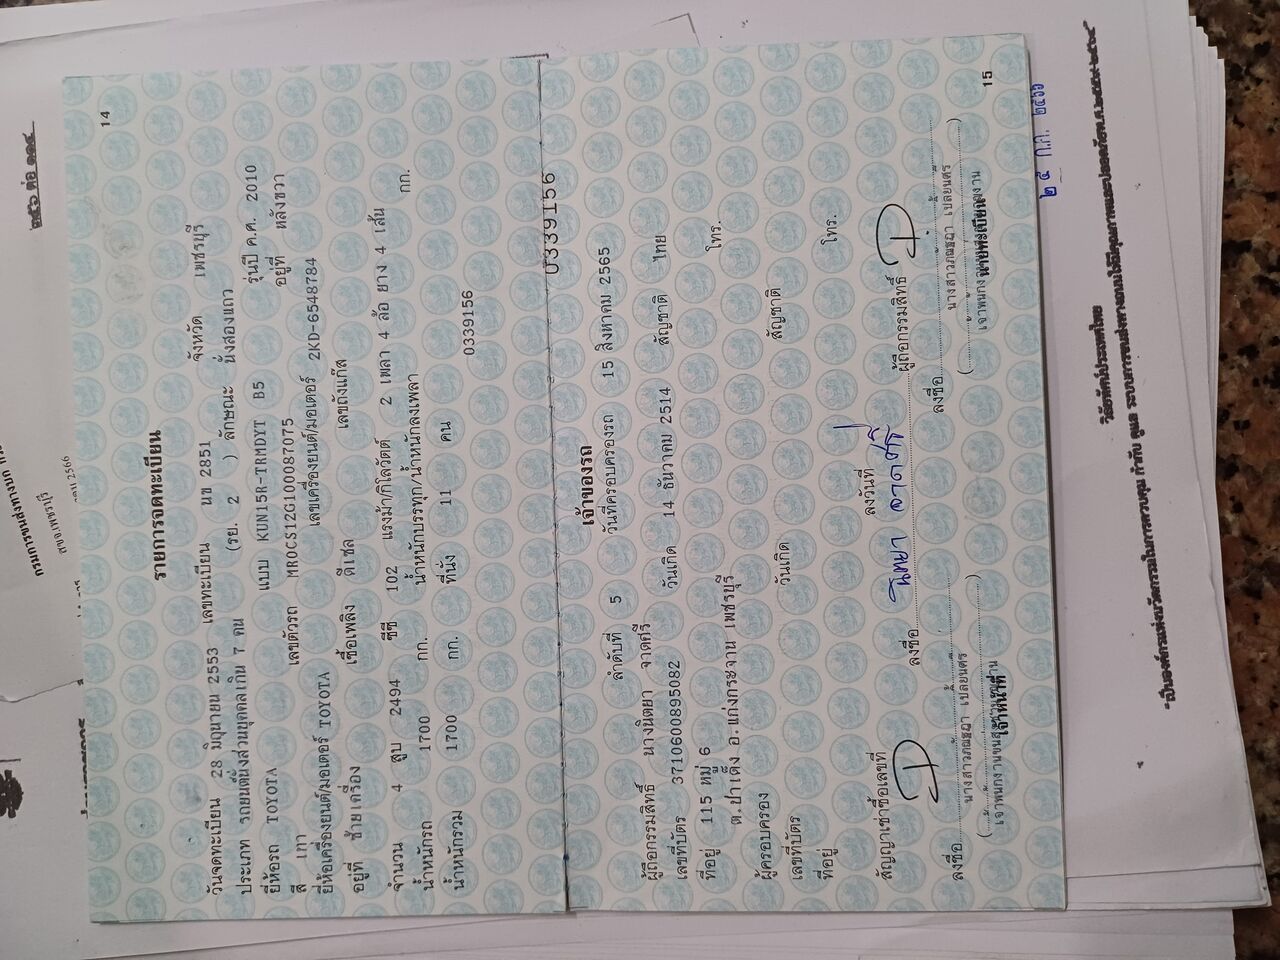 14
รายการจดทะเบียน
วันจดทะเบียน 28 มิถุนายน 2553 เลขทะเบียน นข 2851 จังหวัด เพชรบุรี
ประเภท รถยนต์นั่งส่วนบุคคลเกิน 7 คน (รย. 2 ) ลักษณะ นั่งสองแถว
ยี่ห้อรถ TOYOTA แบบ KUN15R-TRMDYT B5 รุ่นปี ค.ศ. 2010
สี เทา เลขตัวรถ MR0CS12G100087075 อยู่ที่ หลังขวา
ยี่ห้อเครื่องยนต์/มอเตอร์ TOYOTA เลขเครื่องยนต์/มอเตอร์ 2KD-6548784
อยู่ที่ ซ้ายเครื่อง เชื้อเพลิง ดีเซล เลขถังแก๊ส
จำนวน 4 สูบ 2494 ซีซี 102 แรงม้า/กิโลวัตต์ 2 เพลา 4 ล้อ ยาง 4 เส้น
น้ำหนักรถ 1700 กก. น้ำหนักบรรทุก/น้ำหนักลงเพลา กก.
น้ำหนักรวม 1700 กก. ที่นั่ง 11 คน
0339156
0339156
เจ้าของรถ
ลำดับที่ 5 วันที่ครอบครองรถ 15 สิงหาคม 2565
ผู้ถือกรรมสิทธิ์ นางนิตยา จาดศรี
เลขที่บัตร 3710600895082 วันเกิด 14 ธันวาคม 2514 สัญชาติ ไทย
ที่อยู่ 115 หมู่ 6 โทร.
ต.ป่าเด็ง อ.แก่งกระจาน เพชรบุรี
ผู้ครอบครอง
เลขที่บัตร วันเกิด สัญชาติ
ที่อยู่ โทร.
สัญญาเช่าซื้อเลขที่ ลงวันที่
ลงชื่อ นิตยา จาดศรี ผู้ถือกรรมสิทธิ์
ลงชื่อ
นางสาวภณิชฌา เปลี่ยนศร
เจ้าหน้าที่
ลงชื่อ
นางสาวภณิชฌา เปลี่ยนศร
นายทะเบียน
15
๒๕ ก.ค. ๒๕๖๖
กรมการขนส่งทางบก
สขจ.เพชรบุรี
2566
๒๕๖ ต่อ ๑๑๔
วิสัยทัศน์ประเทศไทย